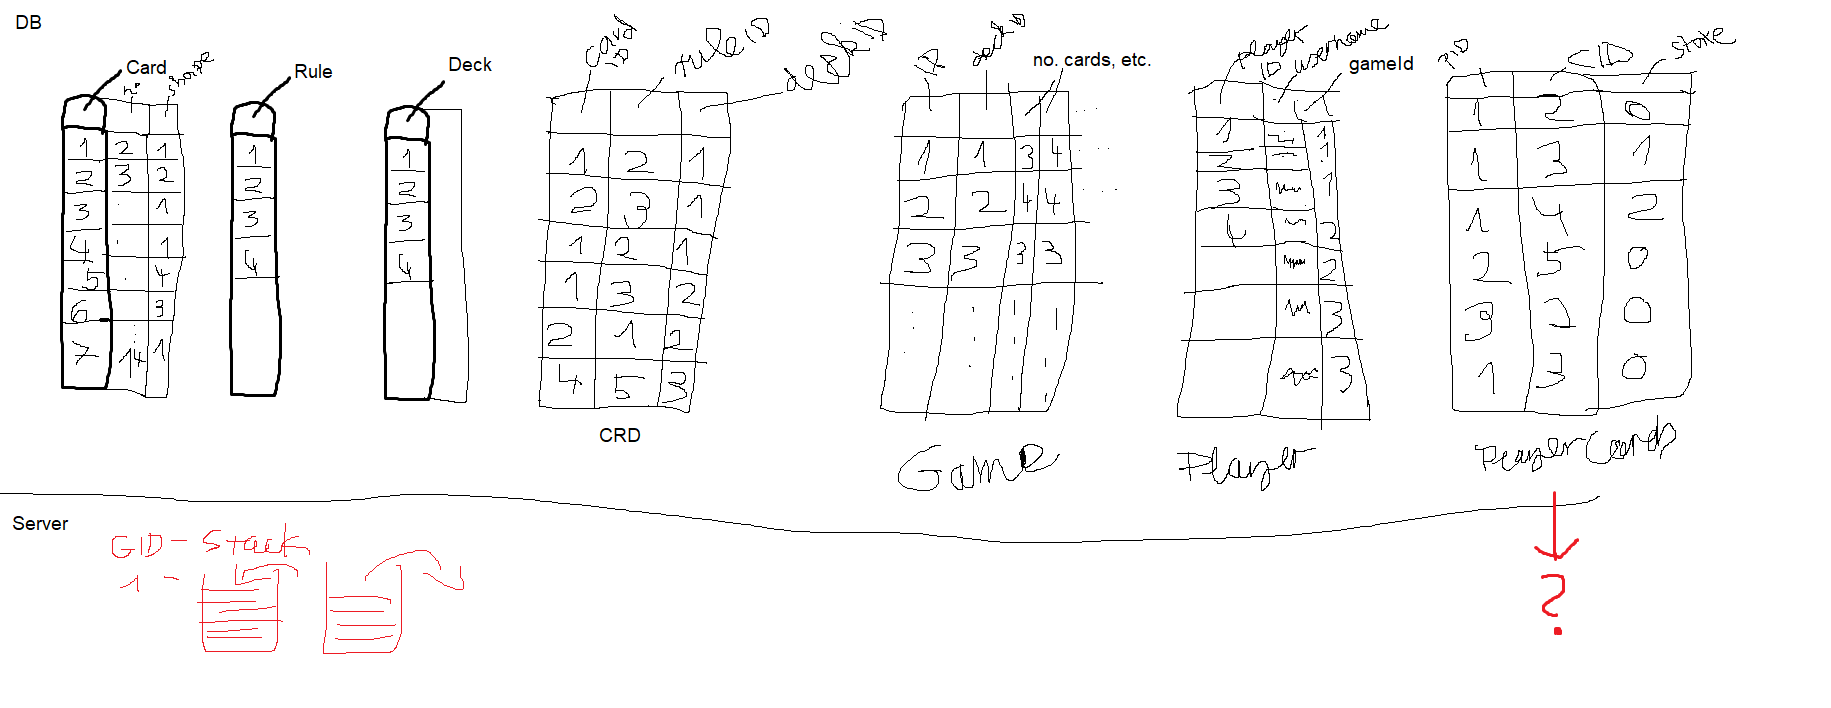 DB
Card
nº
shape
1 2 1
2 3 2
3 1
4 1
5 4
6 3
7 14 1
Rule
1
2
3
4
Deck
1
2
3
4
card ID
rule ID
1 2 1
2 3 1
1 2 1
1 3 2
2 1 2
4 5 3
CRD
ID
no. cards, etc.
1 1 3 4
2 2 4 4
3 3 3 3
Game
player ID
username
gameId
1 1
2 1
3 1
4 2
2
3
3
Player
PID
CID
state
1 2 0
1 3 1
1 4 2
2 5 0
3 2 0
1 3 0
PlayerCards
Server
GID - Stack
1 -
?